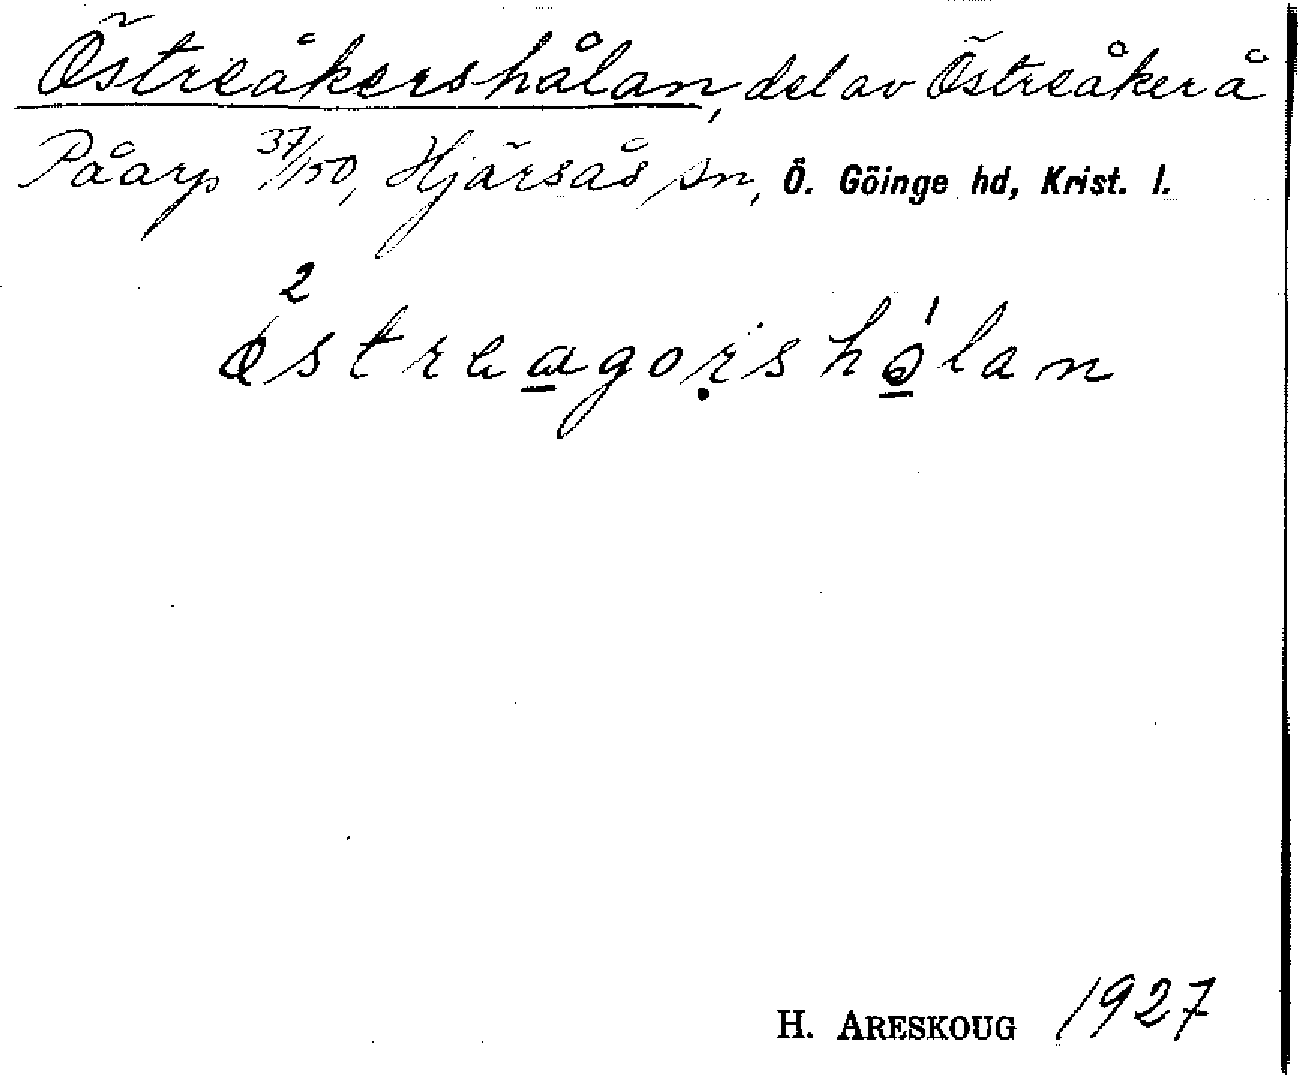 Östreåkershålan, del av Östreåker å
Påarp 37/150, Hjärsås sn, Ö. Göinge hd, Krist. l.
²östreagorshólan
H. ARESKOUG 1927